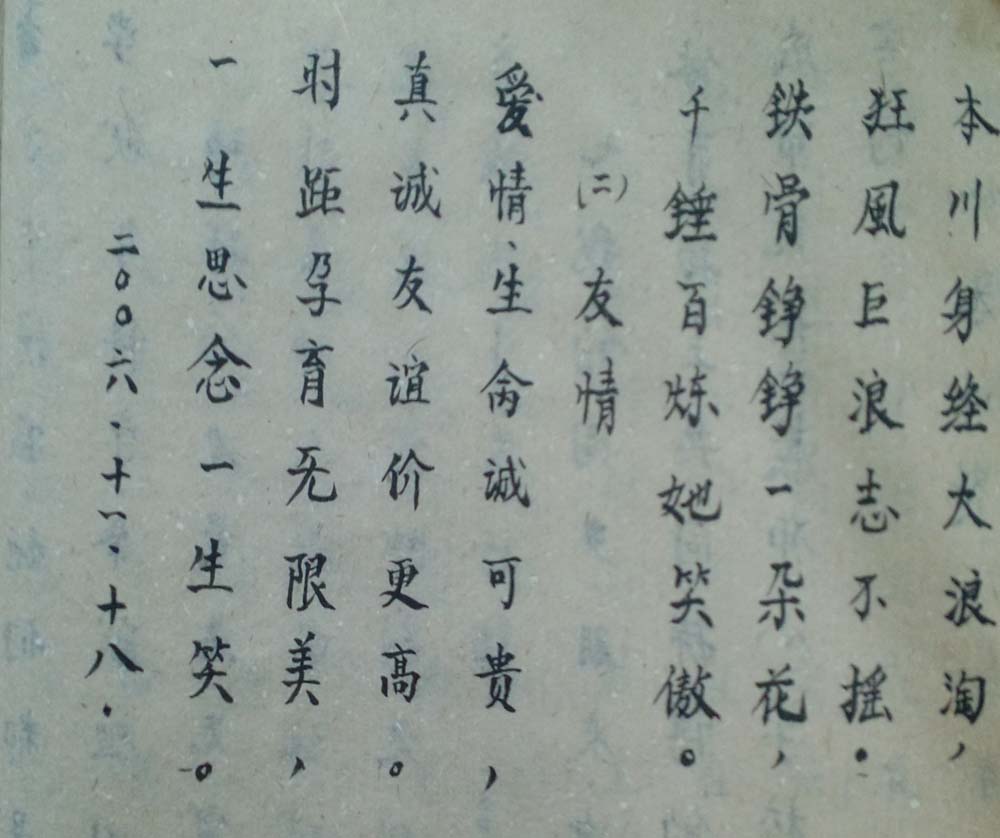 本川身经大浪淘，
狂風巨浪志不摇.
铁骨铮铮一朵花，
千錘百炼她笑傲。
(二)友情
愛情、生命诚可贵，
真诚友谊价更高。
时距孕育无限美，
一生思念一生笑。
二00六、十一、十八.